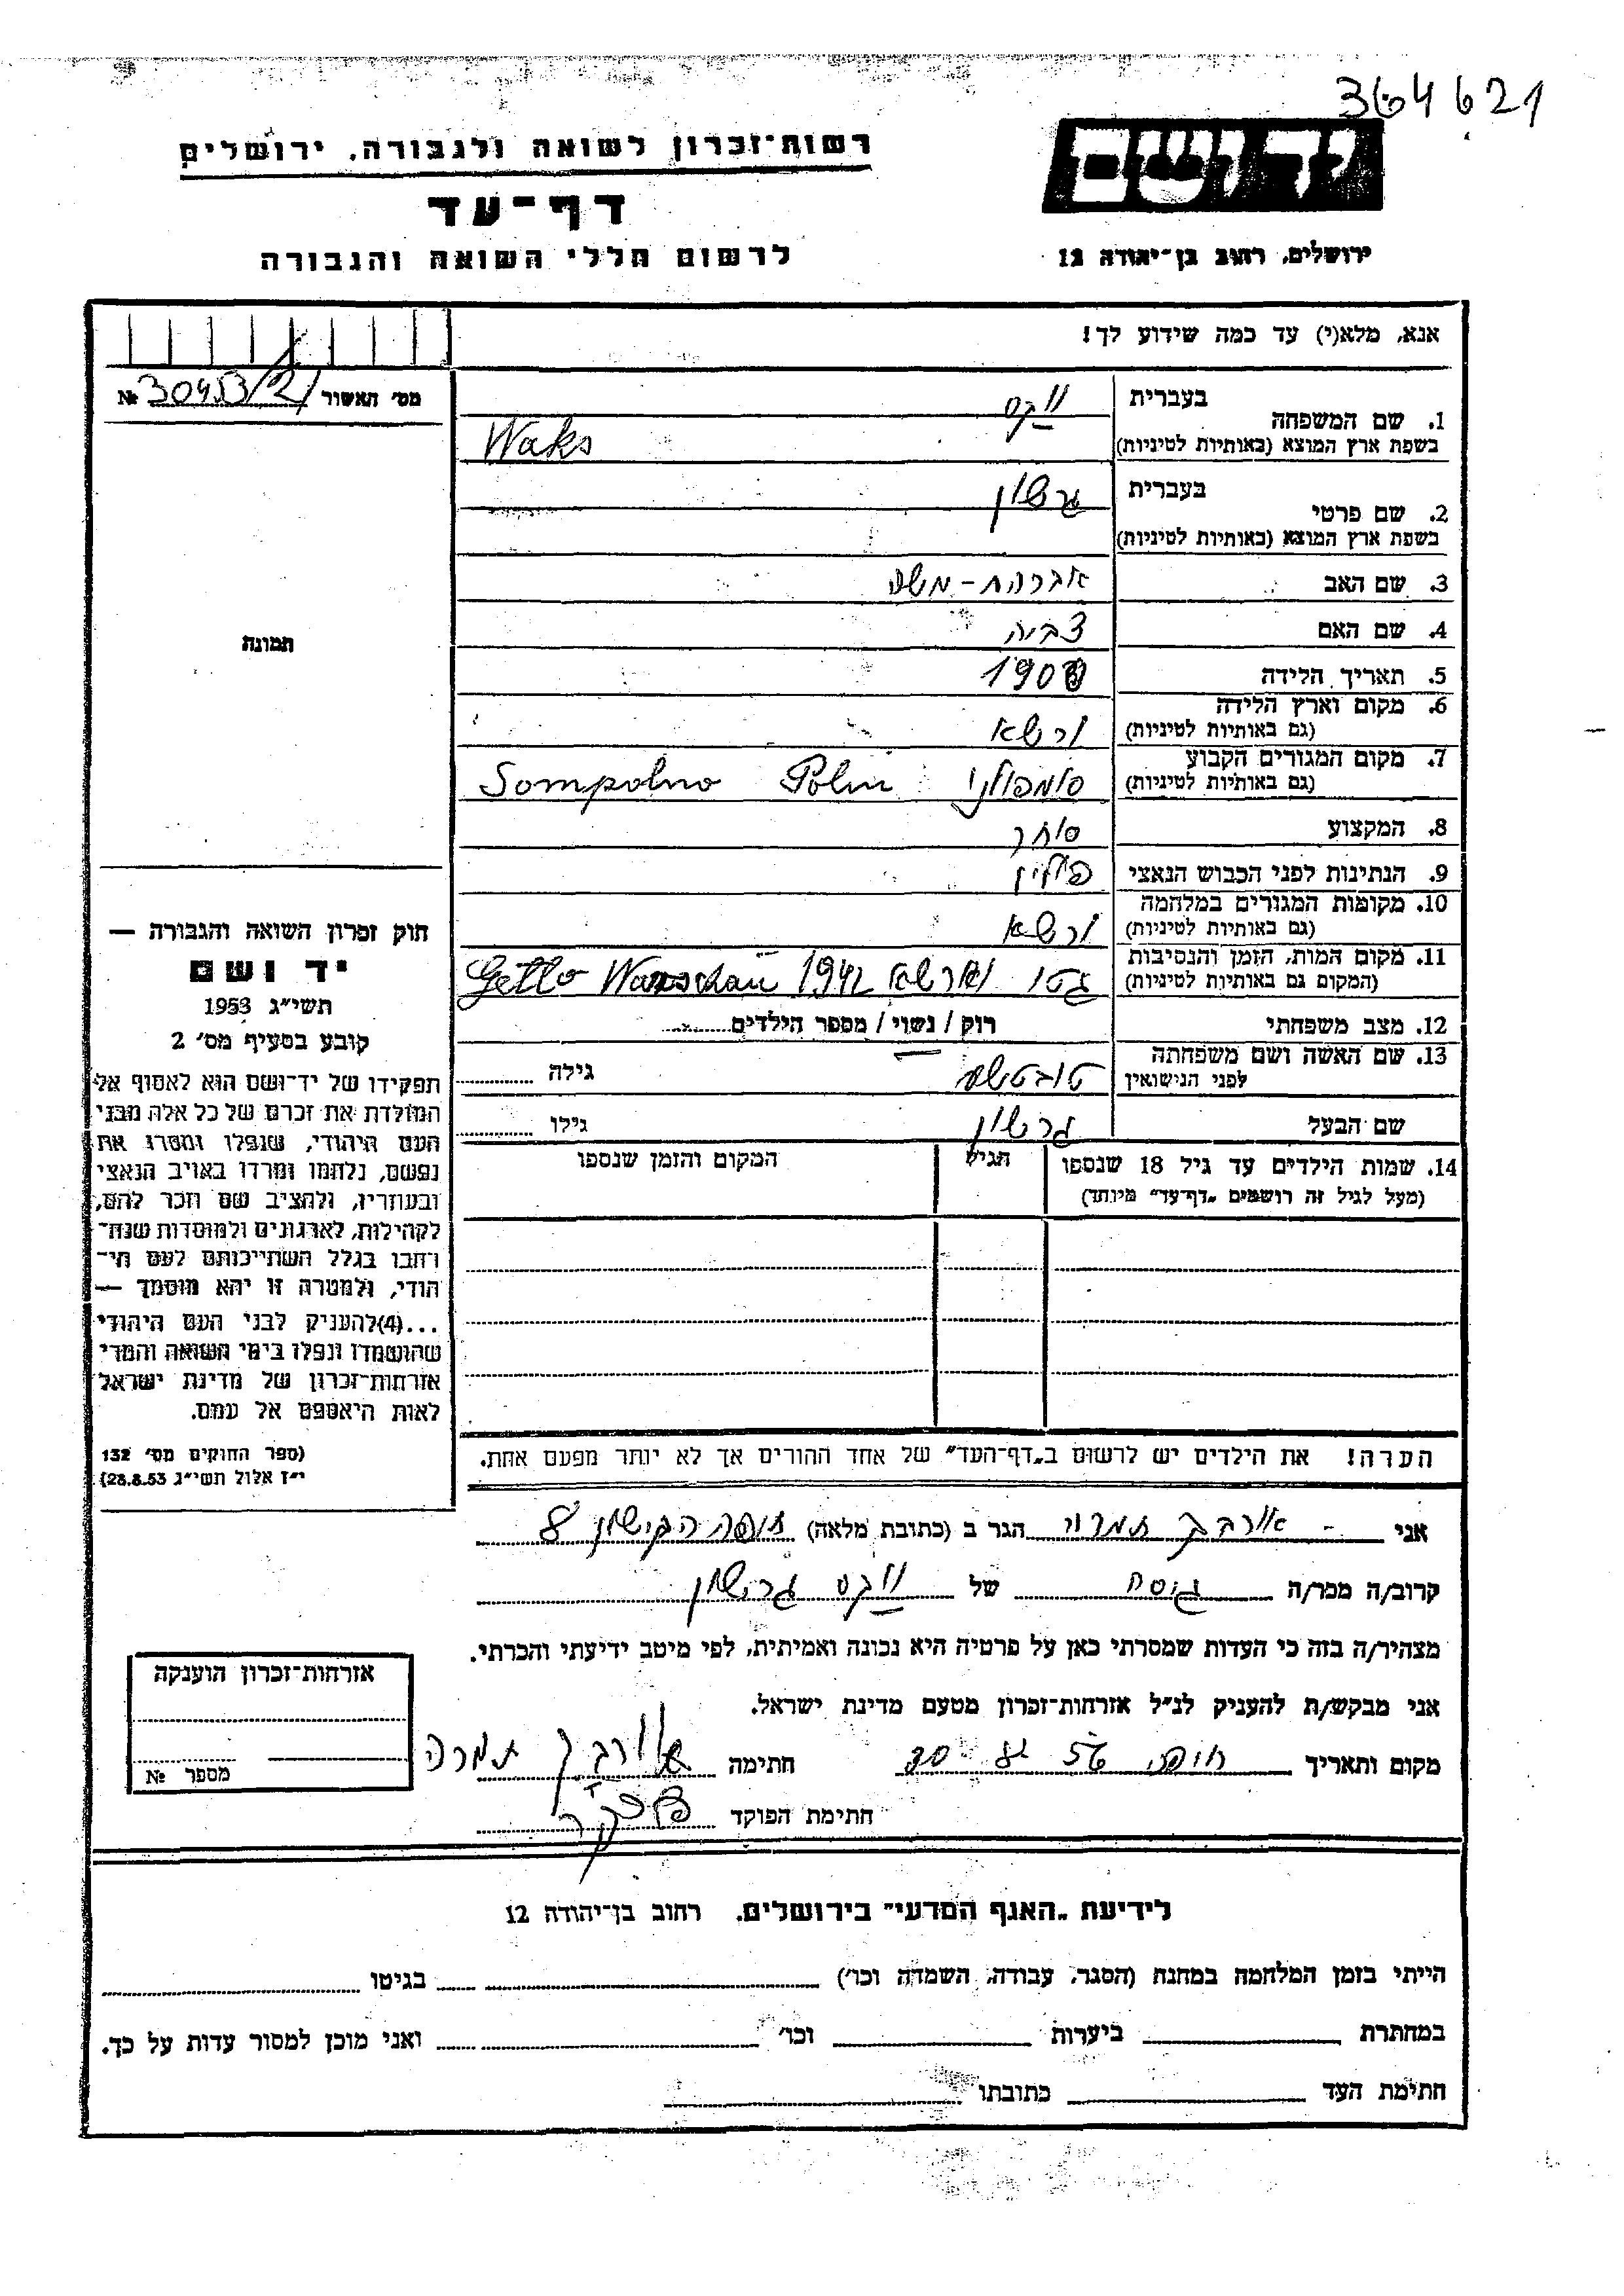 364621
יד ושם
רשות־זכרון לשואה ולגבורה, ירושלים
דף־עד
ירושלים, רחוב בן־יהודה 12
לרשום חללי השואה והגבורה
אנא, מלא(י) עד כמה שידוע לך!
מס׳ האשור № 30453/2
בעברית ווקס
1. שם המשפחה
בשפת ארץ המוצא (באותיות לטיניות) Waks
בעברית גרשון
2. שם פרטי
בשפת ארץ המוצא (באותיות לטיניות)
3. שם האב אברהם - משה
4. שם האם צביה
תמונה
5. תאריך הלידה 1900
6. מקום וארץ הלידה
(גם באותיות לטיניות) ורשא
7. מקום המגורים הקבוע
(גם באותיות לטיניות) סומפולני Polin Sompolno
8. המקצוע סוחר
9. הנתינות לפני הכבוש הנאצי פולין
10. מקומות המגורים במלחמה
(גם באותיות לטיניות) ורשא
11. מקום המות, הזמן והנסיבות
(המקום גם באותיות לטיניות) גטו ורשא 1942 Getto Warschau
12. מצב משפחתי רוק / נשוי / מספר הילדים
13. שם האשה ושם משפחתה
לפני הנישואין גילה
שם הבעל גרשון גילו
14. שמות הילדים עד גיל 18 שנספו הגיל המקום והזמן שנספו
(מעל לגיל זה רושמים „דף־עד״ מיוחד)
חוק זכרון השואה והגבורה —
יד ושם
תשי״ג 1953
קובע בסעיף מס׳ 2
תפקידו של יד־ושם הוא לאסוף אל
המולדת את זכרם של כל אלה מבני
העם היהודי, שנפלו ומסרו את
נפשם, נלחמו ומרדו באויב הנאצי
ובעוזריו, ולהציב שם וזכר להם,
לקהילות, לארגונים ולמוסדות שנח־
רחבו בגלל השתייכותם לעם הי־
הודי, ולמטרה זו יהא מוסמך —
...(4) להעניק לבני העם היהודי
שהושמדו ונפלו בימי השואה והמרי
אזרחות־זכרון של מדינת ישראל
לאות היאספם אל עמם.
(ספר החוקים מס׳ 132
י״ז אלול תשי״ג 28.8.53)
הערה! את הילדים יש לרשום ב„דף־העד״ של אחד ההורים אך לא יותר מפעם אחת.
אני אורבך הגר ב (כתובת מלאה) חיפה הקישון 8
קרוב/ה מכר/ה גיסה של ווקס גרשון
מצהיר/ה בזה כי העדות שמסרתי כאן על פרטיה היא נכונה ואמיתית, לפי מיטב ידיעתי והכרתי.
אני מבקש/ת להעניק לנ״ל אזרחות־זכרון מטעם מדינת ישראל.
מקום ותאריך חיפה חתימה אורבך תמרה
חתימת הפוקד
אזרחות־זכרון הוענקה
מספר №
לידיעת „האגף המדעי״ בירושלים, רחוב בן־יהודה 12
הייתי בזמן המלחמה במחנה (הסגר, עבודה, השמדה וכו׳) בגיטו
במחתרת ביערות וכו׳ ואני מוכן למסור עדות על כך.
חתימת העד כתובתו